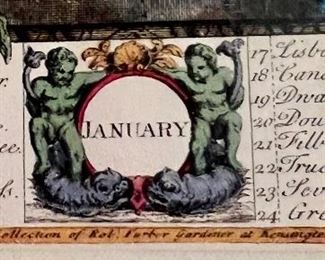 17 Lisbo
18 Can
r.
19 Dwa
JANUARY
20 Dou
ee.
21 Fill
22 Tru
23 Sev
s.
24 Gre
ollection of Rob.t Furber Gardener at Kensingto